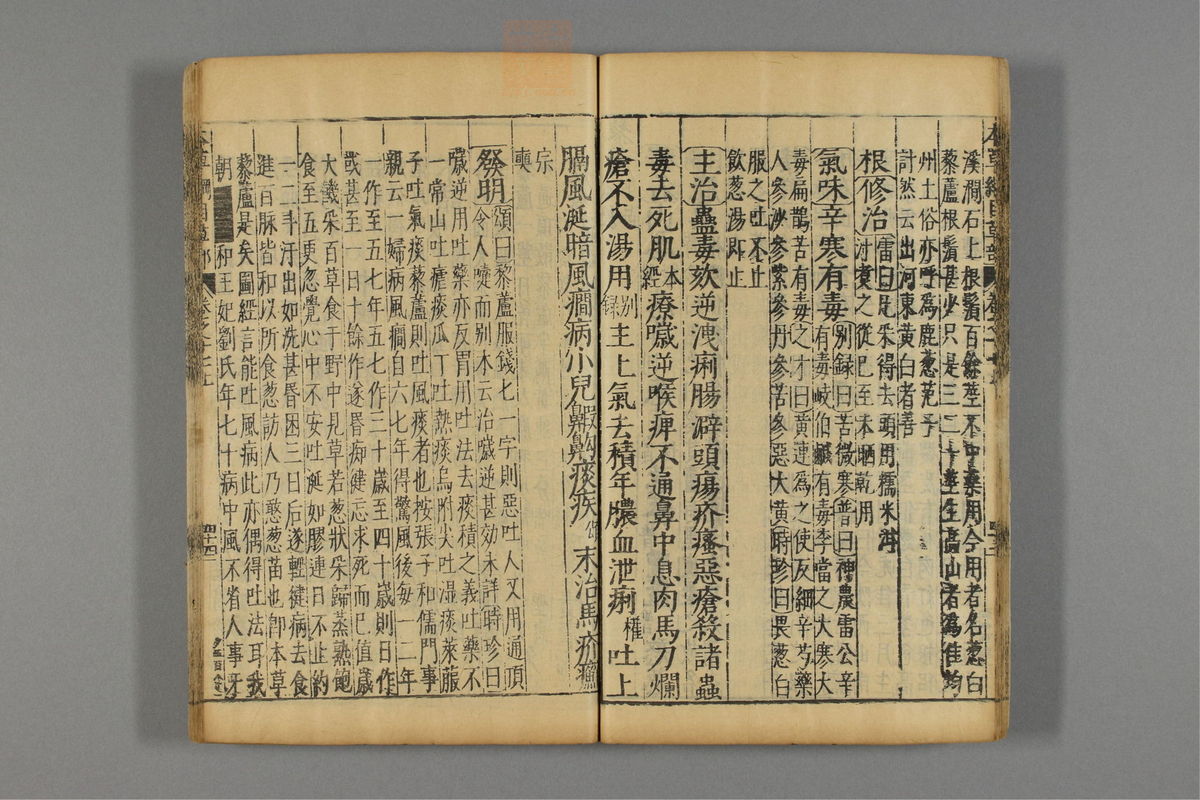 溪澗石上根鬚百餘莖不中藥用今用者名葱白
藜蘆根鬚甚少只是三二十莖生高山者爲佳均
州土俗亦呼爲鹿葱范子
計然云出河東黄白者善
根修治雷曰凡采得去頭用糯米泔
汁煮之從巳至未晒乾用
氣味辛寒有毒别録曰苦微寒普曰神農雷公辛
有毒岐伯鹹有毒李當之大寒大
毒扁鵲苦有毒之才曰黄連爲之使反細辛芍藥
人參沙參紫參丹參苦參惡大黄時珍曰畏葱白
服之吐不止
飲葱湯即止
主治蠱毒欬逆洩痢腸澼頭瘍疥瘙惡瘡殺諸蟲
毒去死肌本經療噦逆喉痺不通鼻中息肉馬刀爛
瘡不入湯用别録主上氣去積年膿血泄痢權吐上
膈風涎暗風癇病小兒鰕䶎痰疾頌末治馬疥癬
宗
奭
發明頌曰藜蘆服錢匕一字則惡吐人又用通頂
令人嚏而别本云治噦逆甚効未詳時珍曰
噦逆用吐藥亦反胃用吐法去痰積之義吐藥不
一常山吐瘧痰瓜丁吐熱痰烏附尖吐湿痰萊菔
子吐氣痰藜蘆則吐風痰者也按張子和儒門事
親云一婦病風癇自六七年得驚風後每一二年
一作至五七年五七作三十歲至四十歲則日作
或甚至一日十餘作遂昏痴健忘求死而已值歲
大譏采百草食于野中見草若葱狀采歸蒸熟飽
食至五更忽覺心中不安吐涎如膠連日不止約
一二斗汗出如洗甚昏困三日后遂輕徤病去食
進百脉皆和以所食葱訪人乃憨葱苗也即本草
藜蘆是矣圖經言能吐風病此亦偶得吐法耳我
朝
和王妃劉氏年七十病中風不省人事牙
四十四